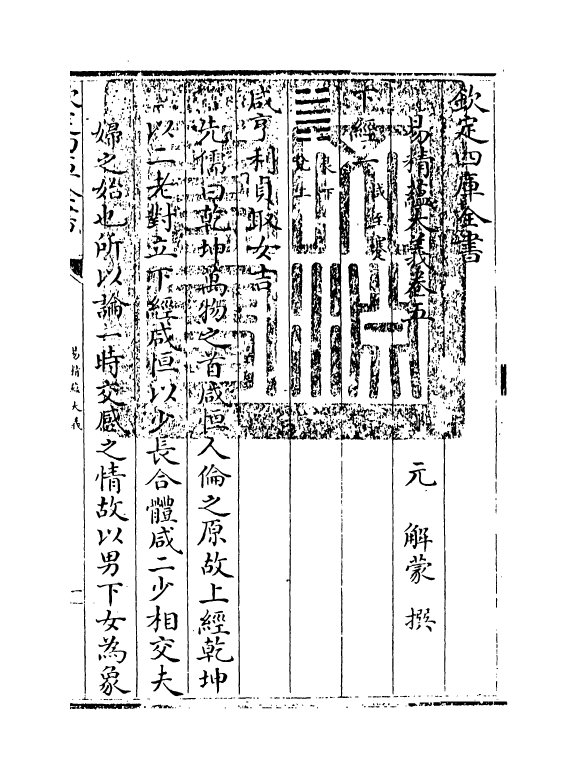 欽定四庫全書
易精蘊大義卷五
元 解蒙 撰
下經
艮下
兌上
咸亨利貞取女吉
先儒曰乾坤萬物之首咸恒人倫之原故上經乾坤
以二老對立下經咸恒以少長合體咸二少相交夫
婦之始也所以論一時交感之情故以男下女為象
易精蘊大義